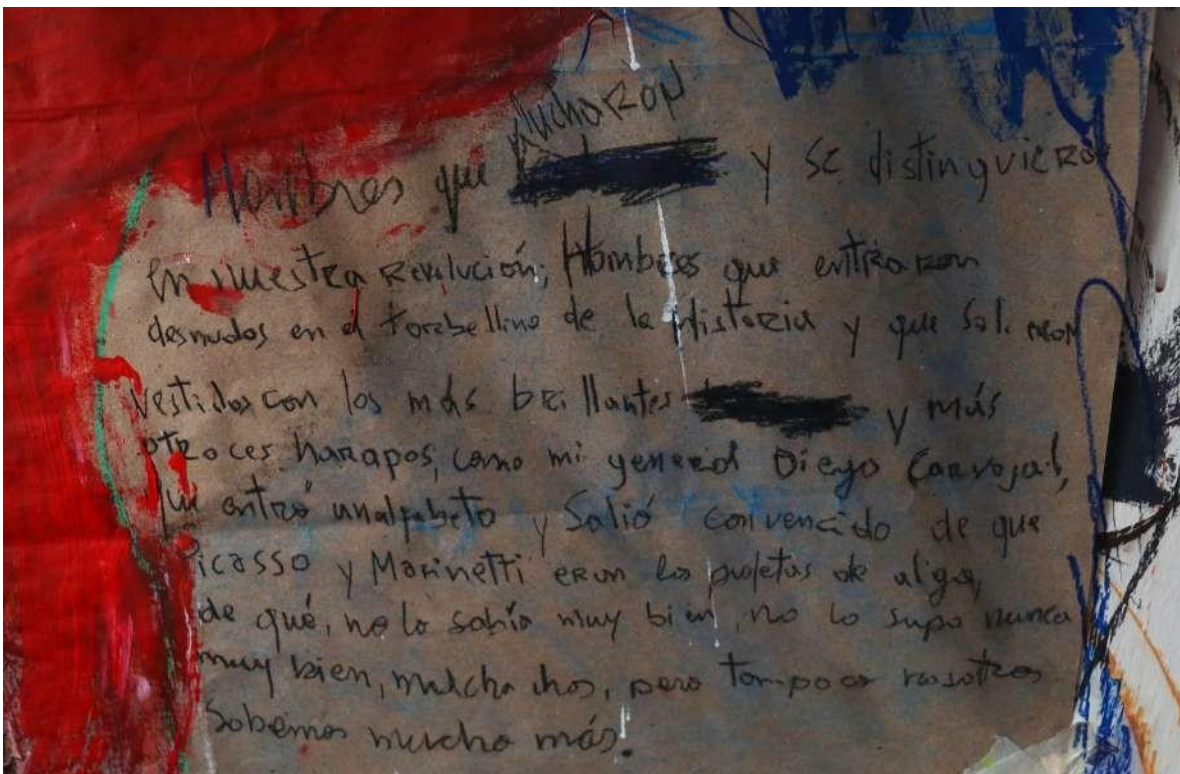 lucharon
Hombres que y se distinguieron
en nuestra Revolución, Hombres que entraron
desnudos en el torbellino de la Historia y que salieron
vestidos con los más brillantes y más
atroces harapos, como mi general Diego Carvajal,
que entró analfabeto y Salió convencido de que
Picasso y Marinetti eran los profetas de algo,
de qué, no lo sabía muy bien, no lo supo nunca
muy bien, muchachos, pero tampoco nosotros
Sabemos mucho más.